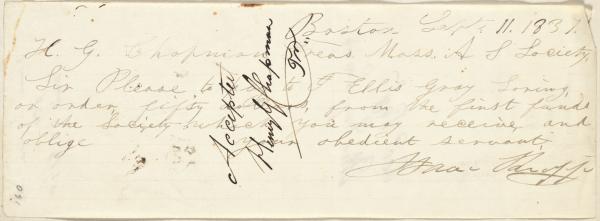 Boston Sept. 11. 1837.
H. G. Chapman Treas. Mass. A S Society
Sir Please to pay to Ellis Gray Loring
or order fifty from the first funds
of the Society which you may receive, and
oblige your obedient servant,
Isaac Knapp
Accepted
Henry G Chapman
Tr.